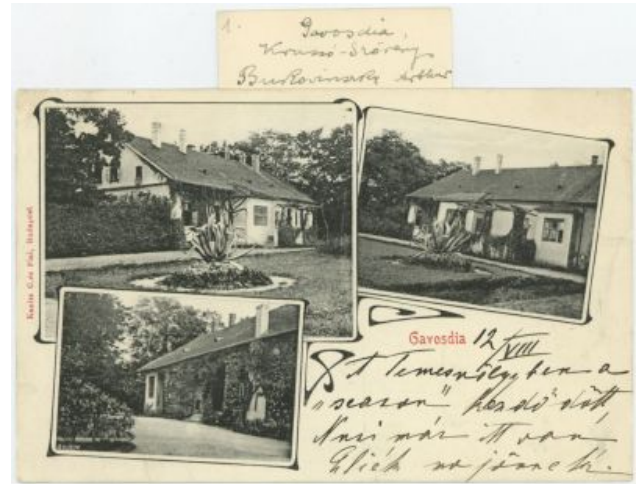 1. Gavosdia,
Krassó-Szörény
Bukovinszky Arthur
Kanitz C. és Fiai, Budapest
Gavosdia 12/VIII
A Temesvölgyben a
„season" kezdődött
Nusi már itt van